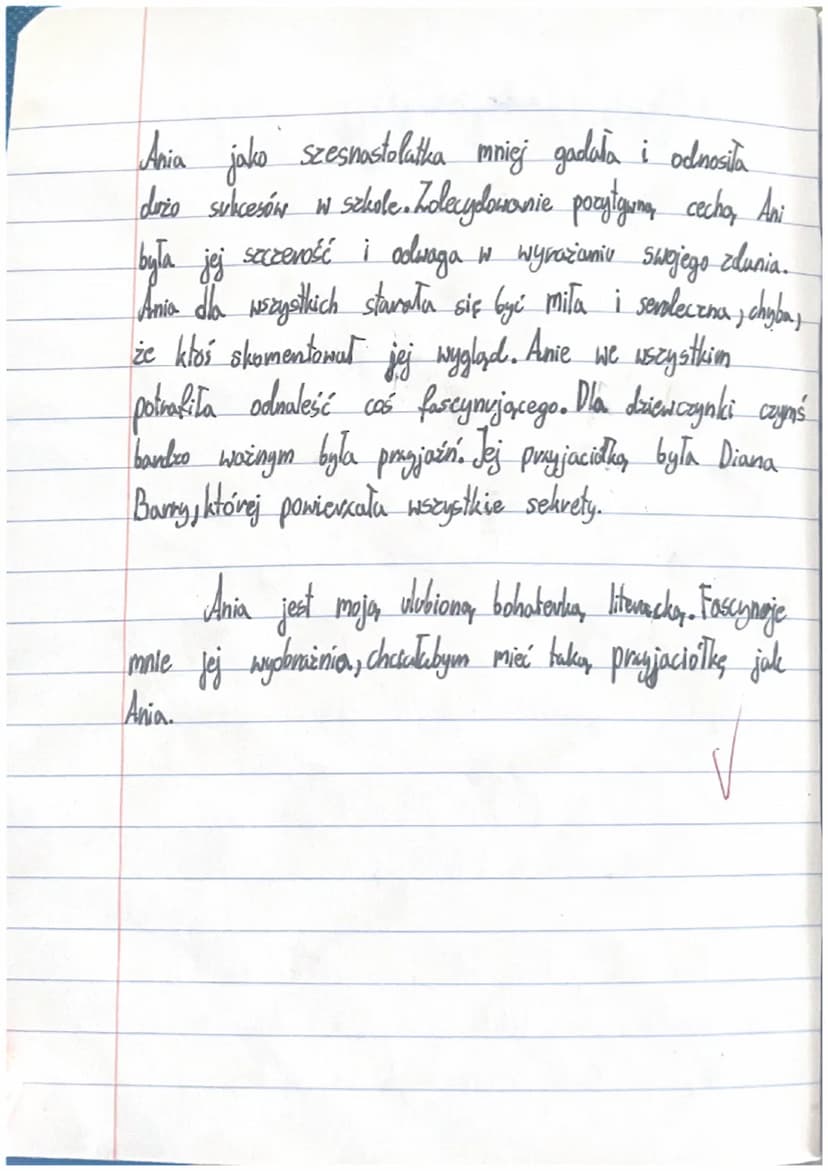 Ania jako szesnastolatka mniej gadała i odnosiła
dużo sukcesów w szkole. Zdecydowanie pozytywną cechą Ani
była jej szczerość i odwaga w wyrażaniu swojego zdania.
Ania dla wszystkich starała się być miła i serdeczna, chyba,
że ktoś skomentował jej wygląd. Anie we wszystkim
potrafiła odnaleść coś fascynującego. Dla dziewczynki czymś
bardzo ważnym była przyjaźń. Jej przyjaciółką była Diana
Barry, której powierzała wszystkie sekrety.
Ania jest moją ulubioną bohaterką literacką. Fascynuje
mnie jej wyobraźnia, chciałabym mieć taką przyjaciółkę jak
Ania.